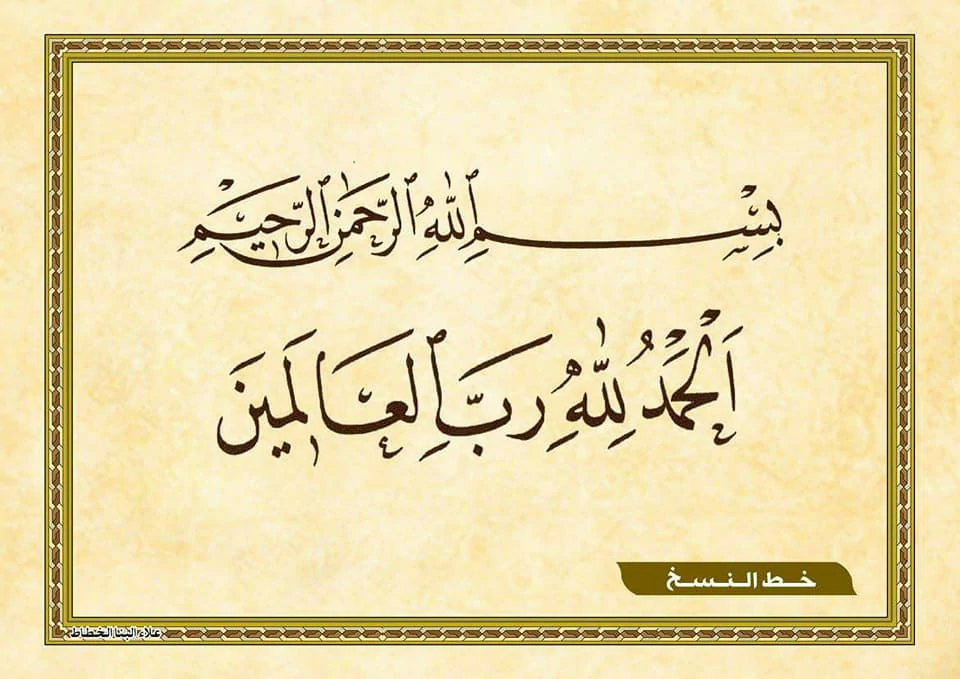 بِسْمِ ٱللَّهِ ٱلرَّحْمَٰنِ ٱلرَّحِيْمِ
اَلْحَمْدُ لِلّٰهِ رَبِّ ٱلْعَالَمِينَ
خط النسخ
علاء البنا الخطاط